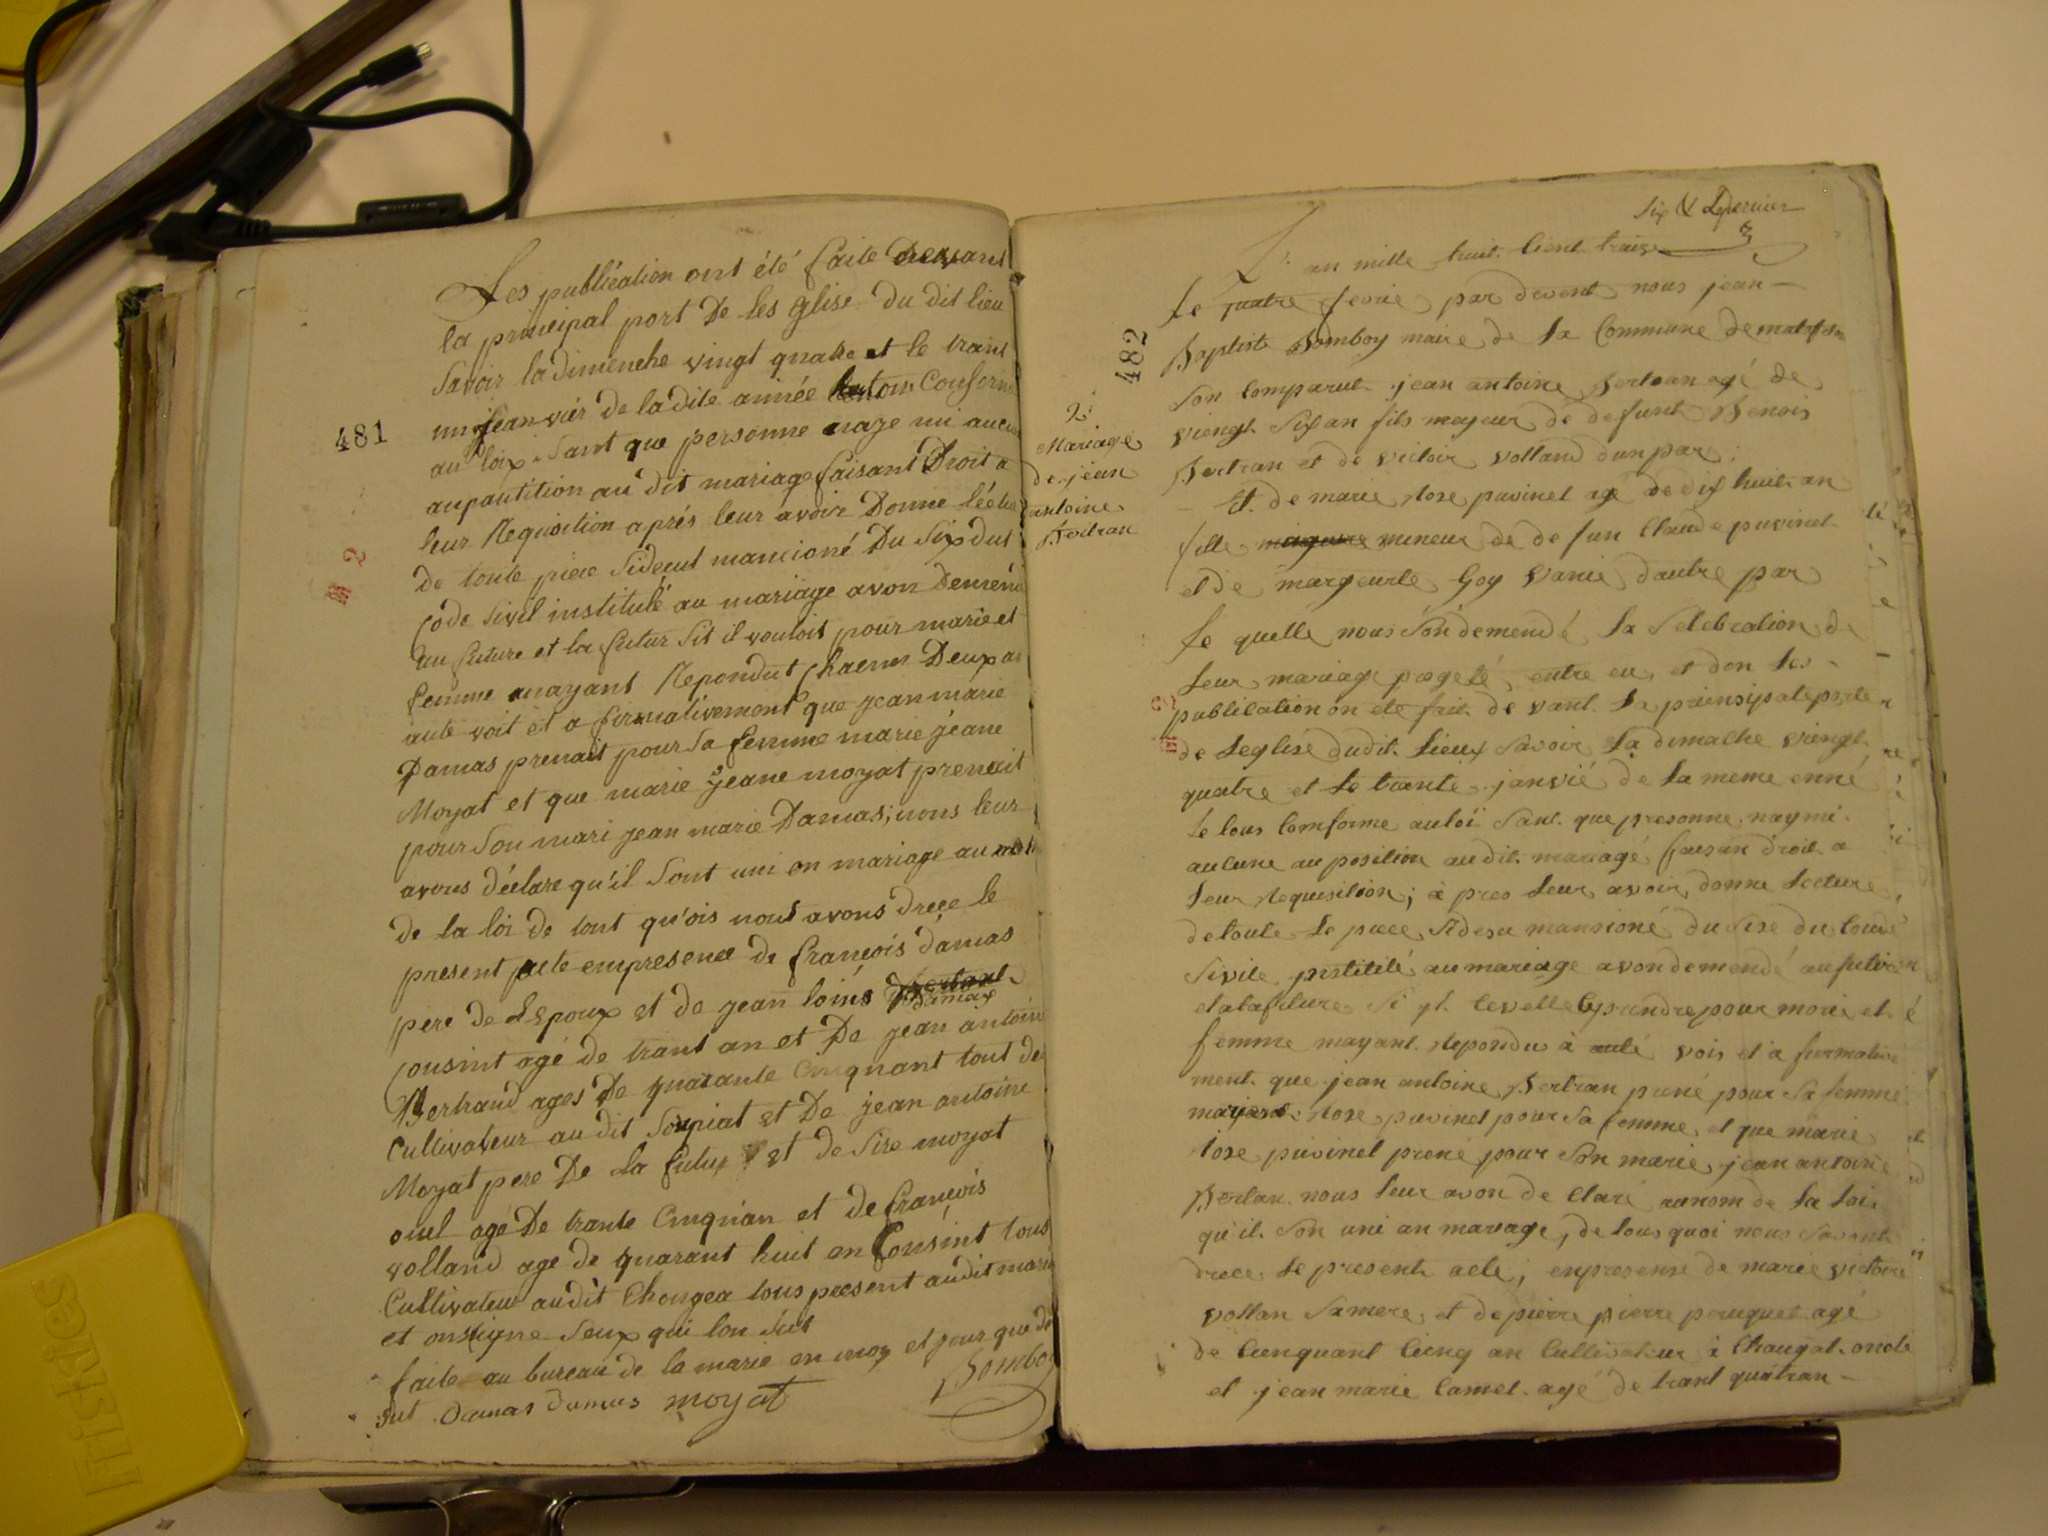 481
Les publication ont été faite devant
la principal port De les glise du dit lieu
savoir la dimenche vingt quatre et le trant
un Jeanvier de la dite année Conforme
au loix Sant que personne naye ni aucun
aupautition au dit mariage faisant Droit a
leur Requisition aprés leur avoir Donne
de toute piece sidecut mancioné Du Six dut
Code Sivil institulé au mariage avon
au future et la futur Sit il vouloit pour marie et
femme Repondut Chacun Deux a
aute voit et a firmativemont que jean marie
Damas prenait pour Sa femme marie jéane
Moyat et que marie jeane moyat prenait
pour Son mari jean marie Damas; nous leur
avons déclare qu'il Sont uni en mariage au
de la loi de tout qu'ois nous avons drece le
present acte empresence de françois damas
pere de Lepoux et de jean loüis Damas
Cousint agé de trant an et De jean antoine
Bertrand ages De quarante Cinquant tout de
Cultivateur au dit et De jean antoine
Moyat pere De La futur et de Sire moyat
agé De trante Cinquan et de françois
volland age de quarant huit an Cousint tous
Cultivateur audit Chougea tous present audit
et ont signe Seux qui lon Sut
faite au bureau de la marie en et jour que de
sut Damas Damas moyat Bomboy
Six & Dernier
482
L'an mille huit Cient traize
Le quatre fevrie par devent nous jean
Baptiste Bomboy maire de La Commune de
Son Comparut jean antoine Bertran agé de
viengt Six an fils mayeur de defunt Benois
Bertran et de victoir volland dun par
2
Mariage
de jean
antoine
Bertran
Et de marie Rose puvinel agé de dix huit an
fille mineur de de fun Claude puvinel
et de margeurte Goy vanie dautre par
Le quelle nous Son demendé La Selebration de
Leur mariage progeté entre eu, et don Les
publication on eté fait de vant La prinsipale porte
de Leglise dudit Lieux Savoir La dimache viengt
quatre et Le trante janvié de La meme enné
Le tous Comforme auloi Sant que presonne nay ni
aucune au position au dit mariagé faisan droit a
Leur Requisition; à pres Leur avoir donne Lecture
de toute Le piece Sidesu mansioné du Sise du Code
Sivile au mariage avon demendé au
et ala future Si pour marie et
femme mayant Repondu à auté vois et a firmative
ment que jean antoine Bertran prené pour Sa femme
Rose puvinel pour Sa femme et que marie
Rose puvinel prené pour Son marie jean antoine
Bertran nous Leur avon de Claré aunom de La Loi
qu'il Son uni an mariage, de tous quoi nous
drece Le presente acte, enpresense de marie victoire
vollan Samere et de pierre pierre peruquet agé
de Cinquant Cinq an Cultivateur à Chougat oncle
et jean marie Camet agé de trant quatran